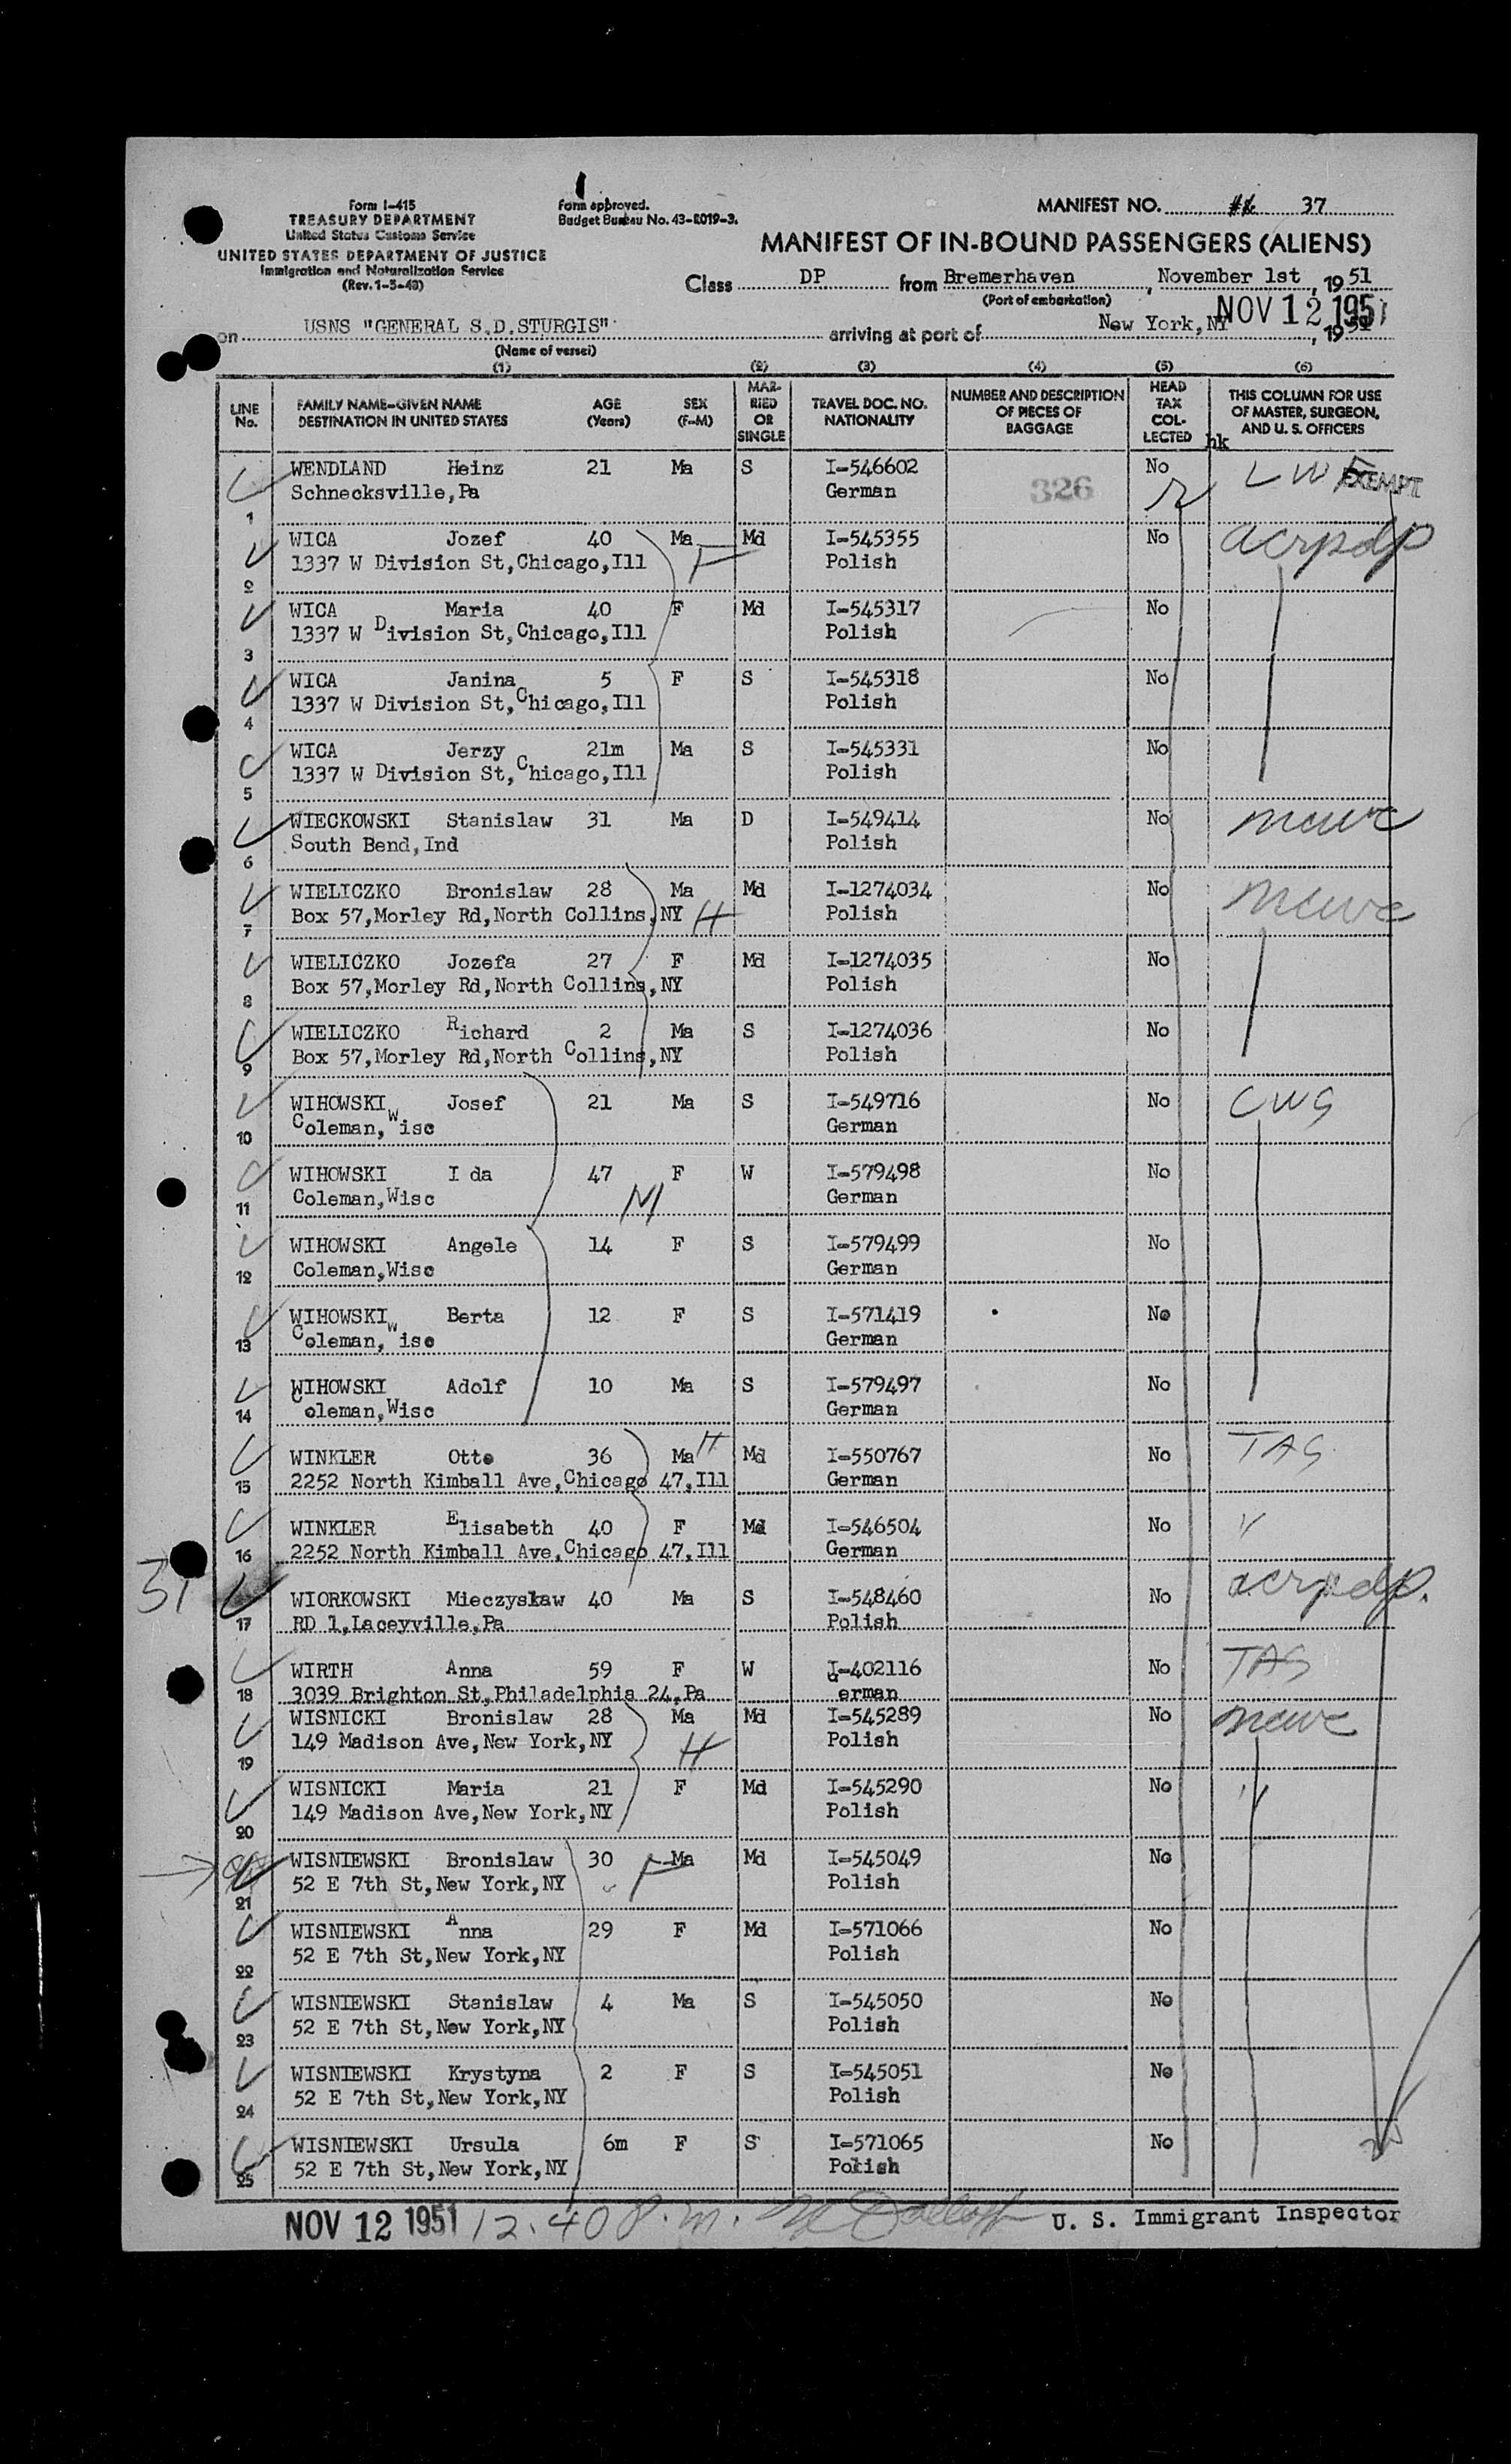 Form I-415
TREASURY DEPARTMENT
United States Customs Service
UNITED STATES DEPARTMENT OF JUSTICE
Immigration and Naturalization Service
(Rev. 1-5-48)
Form approved.
Budget Bureau No. 43-R019-3.
MANIFEST NO. 37
MANIFEST OF IN-BOUND PASSENGERS (ALIENS)
Class DP from Bremerhaven, November 1st, 1951
(Port of embarkation)
on USNS "GENERAL S.D.STURGIS" arriving at port of New York, NY NOV 12 1951, 1951
(Name of vessel)
(1) (2) (3) (4) (5) (6)
LINE No. FAMILY NAME-GIVEN NAME DESTINATION IN UNITED STATES AGE (Years) SEX (F-M) MARRIED OR SINGLE TRAVEL DOC. NO. NATIONALITY NUMBER AND DESCRIPTION OF PIECES OF BAGGAGE HEAD TAX COLLECTED hk THIS COLUMN FOR USE OF MASTER, SURGEON, AND U. S. OFFICERS
WENDLAND Heinz 21 Ma S I-546602 326 No LW EXEMPT
1 Schnecksville,Pa German
WICA Jozef 40 Ma F Md I-545355 No acrpdp
2 1337 W Division St,Chicago,Ill Polish
WICA Maria 40 F Md I-545317 No
3 1337 W Division St,Chicago,Ill Polish
WICA Janina 5 F S I-545318 No
4 1337 W Division St,Chicago,Ill Polish
WICA Jerzy 21m Ma S I-545331 No
5 1337 W Division St,Chicago,Ill Polish
WIECKOWSKI Stanislaw 31 Ma D I-549414 No
6 South Bend,Ind Polish
WIELICZKO Bronislaw 28 Ma Md I-1274034 No
7 Box 57,Morley Rd,North Collins,NY H Polish
WIELICZKO Jozefa 27 F Md I-1274035 No
8 Box 57,Morley Rd,North Collins,NY Polish
WIELICZKO Richard 2 Ma S I-1274036 No
9 Box 57,Morley Rd,North Collins,NY Polish
WIHOWSKI Josef 21 Ma S I-549716 No CWG
10 Coleman,Wisc German
WIHOWSKI I da 47 F W I-579498 No
11 Coleman,Wisc M German
WIHOWSKI Angele 14 F S I-579499 No
12 Coleman,Wisc German
WIHOWSKI Berta 12 F S I-571419 No
13 Coleman,Wisc German
WIHOWSKI Adolf 10 Ma S I-579497 No
14 Coleman,Wisc German
WINKLER Otto 36 Ma H Md I-550767 No TAG
15 2252 North Kimball Ave,Chicago 47,Ill German
WINKLER Elisabeth 40 F Md I-546504 No
16 2252 North Kimball Ave,Chicago 47,Ill German
WIORKOWSKI Mieczysław 40 Ma S I-548460 No acrpdp.
17 RD 1,Laceyville,Pa Polish
WIRTH Anna 59 F W I-402116 No TAG
18 3039 Brighton St,Philadelphia 24,Pa German
WISNICKI Bronislaw 28 Ma Md I-545289 No
19 149 Madison Ave,New York,NY H Polish
WISNICKI Maria 21 F Md I-545290 No
20 149 Madison Ave,New York,NY Polish
WISNIEWSKI Bronislaw 30 F Ma Md I-545049 No
21 52 E 7th St,New York,NY Polish
WISNIEWSKI Anna 29 F Md I-571066 No
22 52 E 7th St,New York,NY Polish
WISNIEWSKI Stanislaw 4 Ma S I-545050 No
23 52 E 7th St,New York,NY Polish
WISNIEWSKI Krystyna 2 F S I-545051 No
24 52 E 7th St,New York,NY Polish
WISNIEWSKI Ursula 6m F S I-571065 No
25 52 E 7th St,New York,NY Polish
NOV 12 1951 12.40 P.m. U. S. Immigrant Inspector